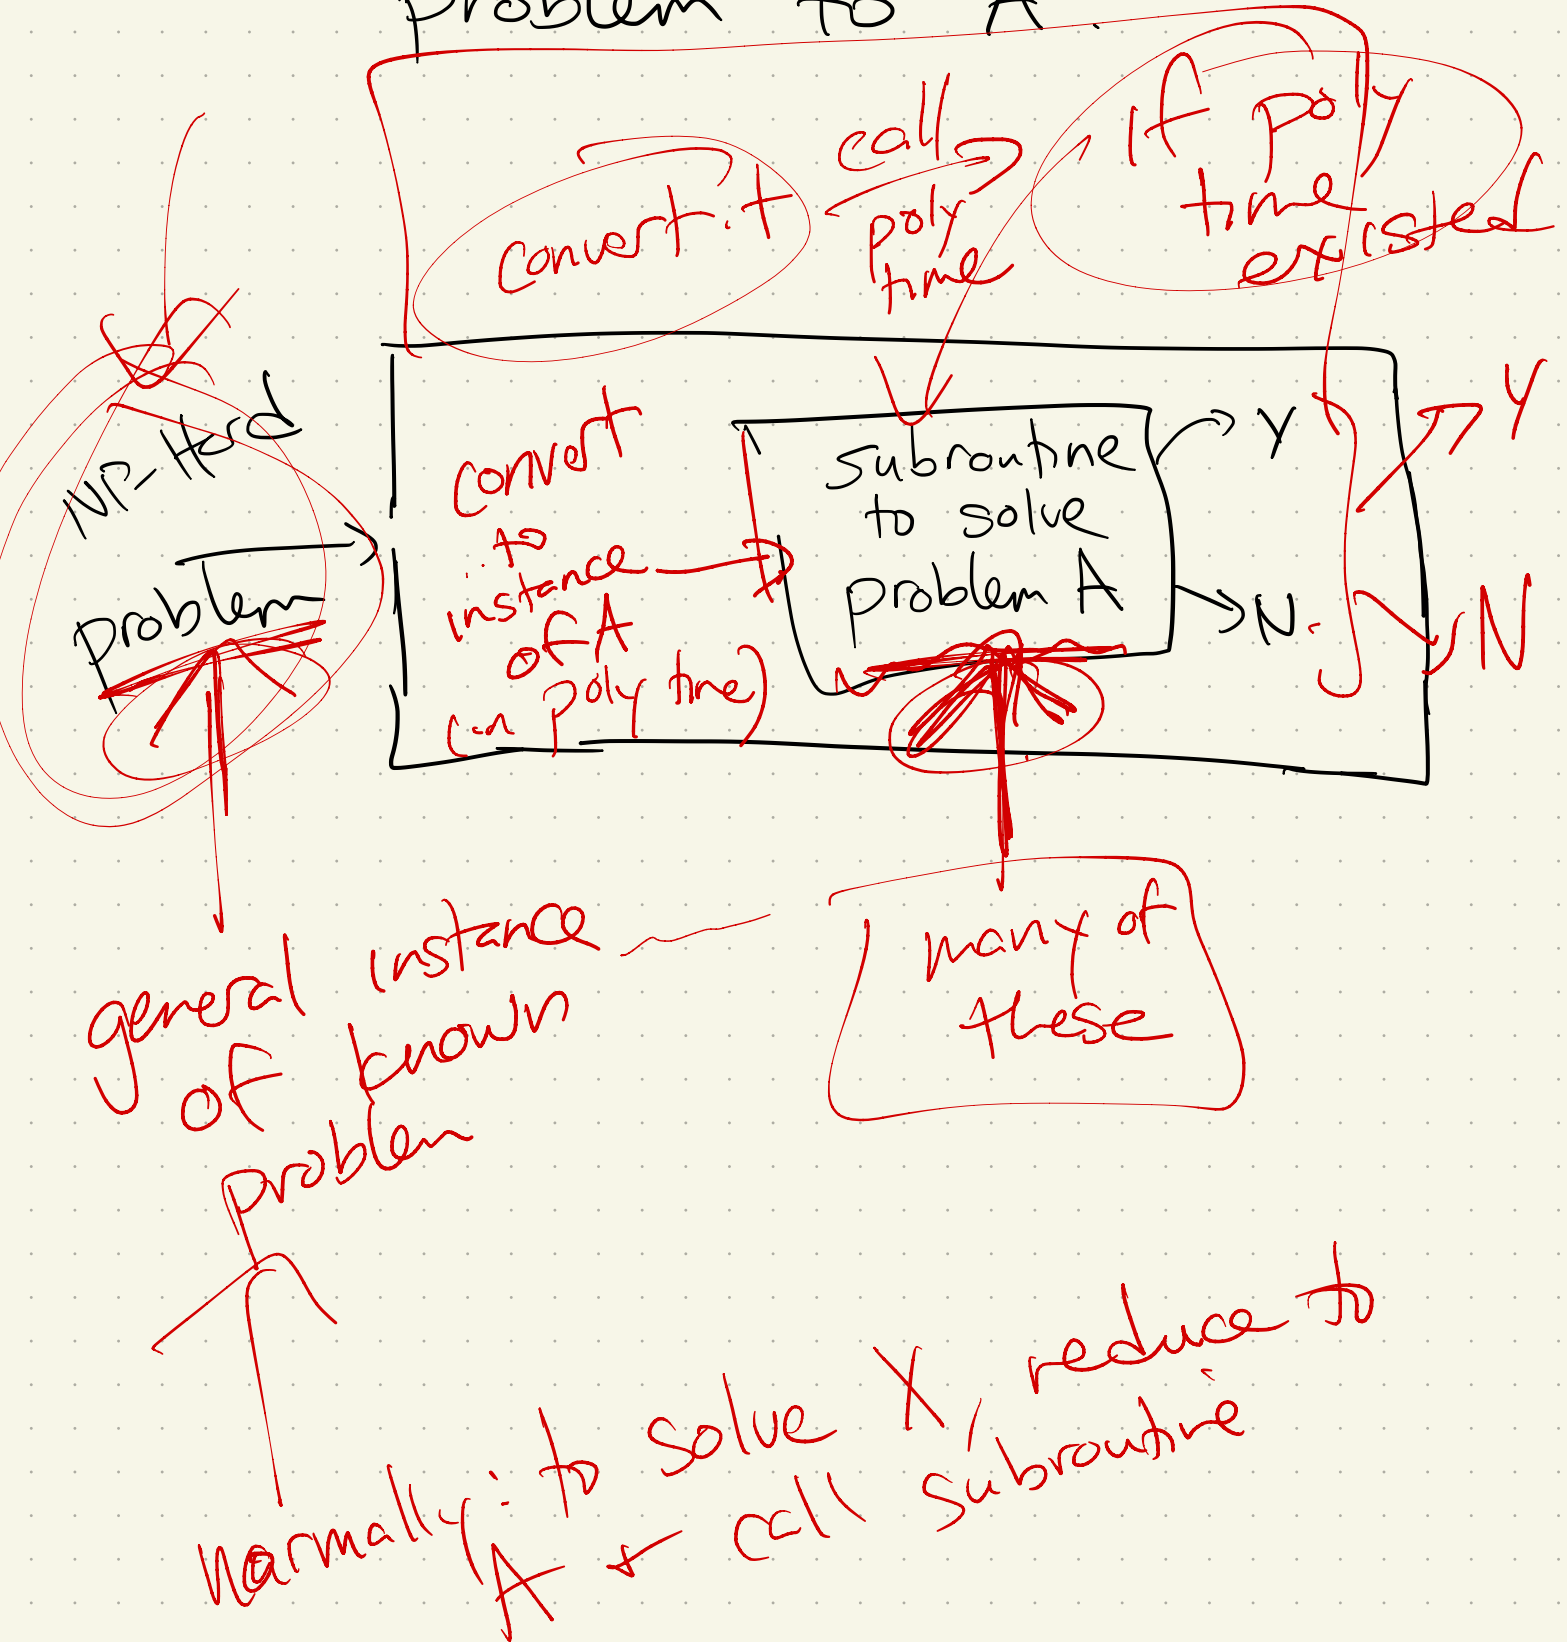 problem to A.
convert it
call
poly
time
if poly
time
existed
NP-Hard
problem
convert
to
instance
of A
(in poly time)
subroutine
to solve
problem A
Y
N
Y
N
general instance
of known
problem
many of
these
normally: to solve X, reduce to
A + call subroutine